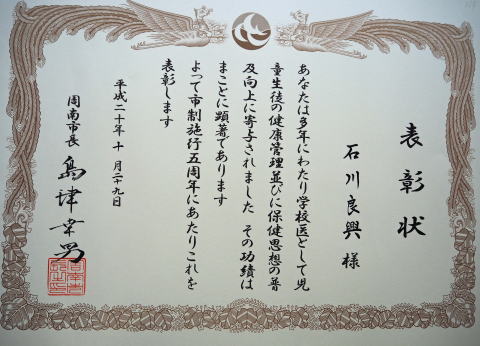 表彰状
石川良興 様
あなたは多年にわたり学校医として児
童生徒の健康管理並びに保健思想の普
及向上に寄与されました その功績は
まことに顕著であります
よって市制施行五周年にあたりこれを
表彰します
平成二十年十月二十九日
周南市長 島津幸男